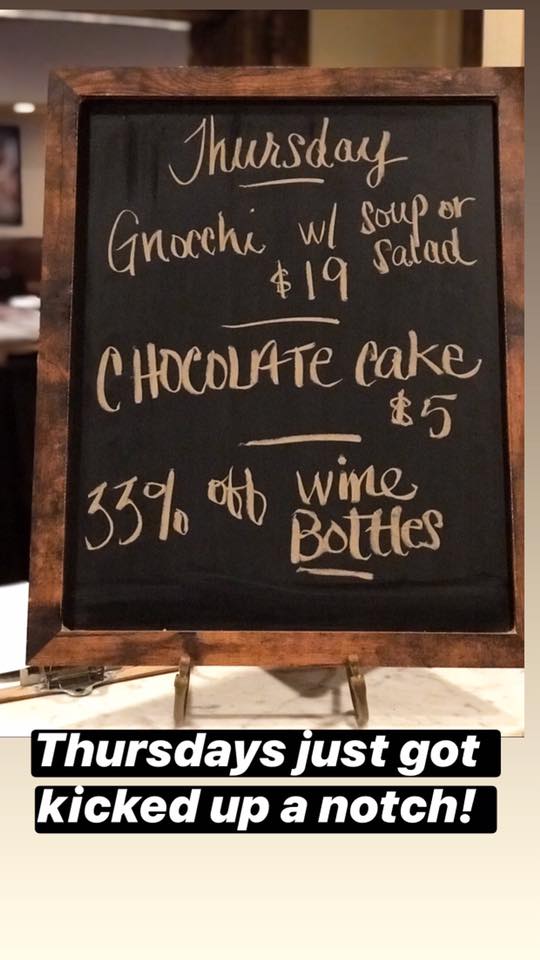 Thursday
Gnocchi w/ soup or
salad
$19
CHOCOLATe cake
$5
33% off wine
Bottles
Thursdays just got
kicked up a notch!